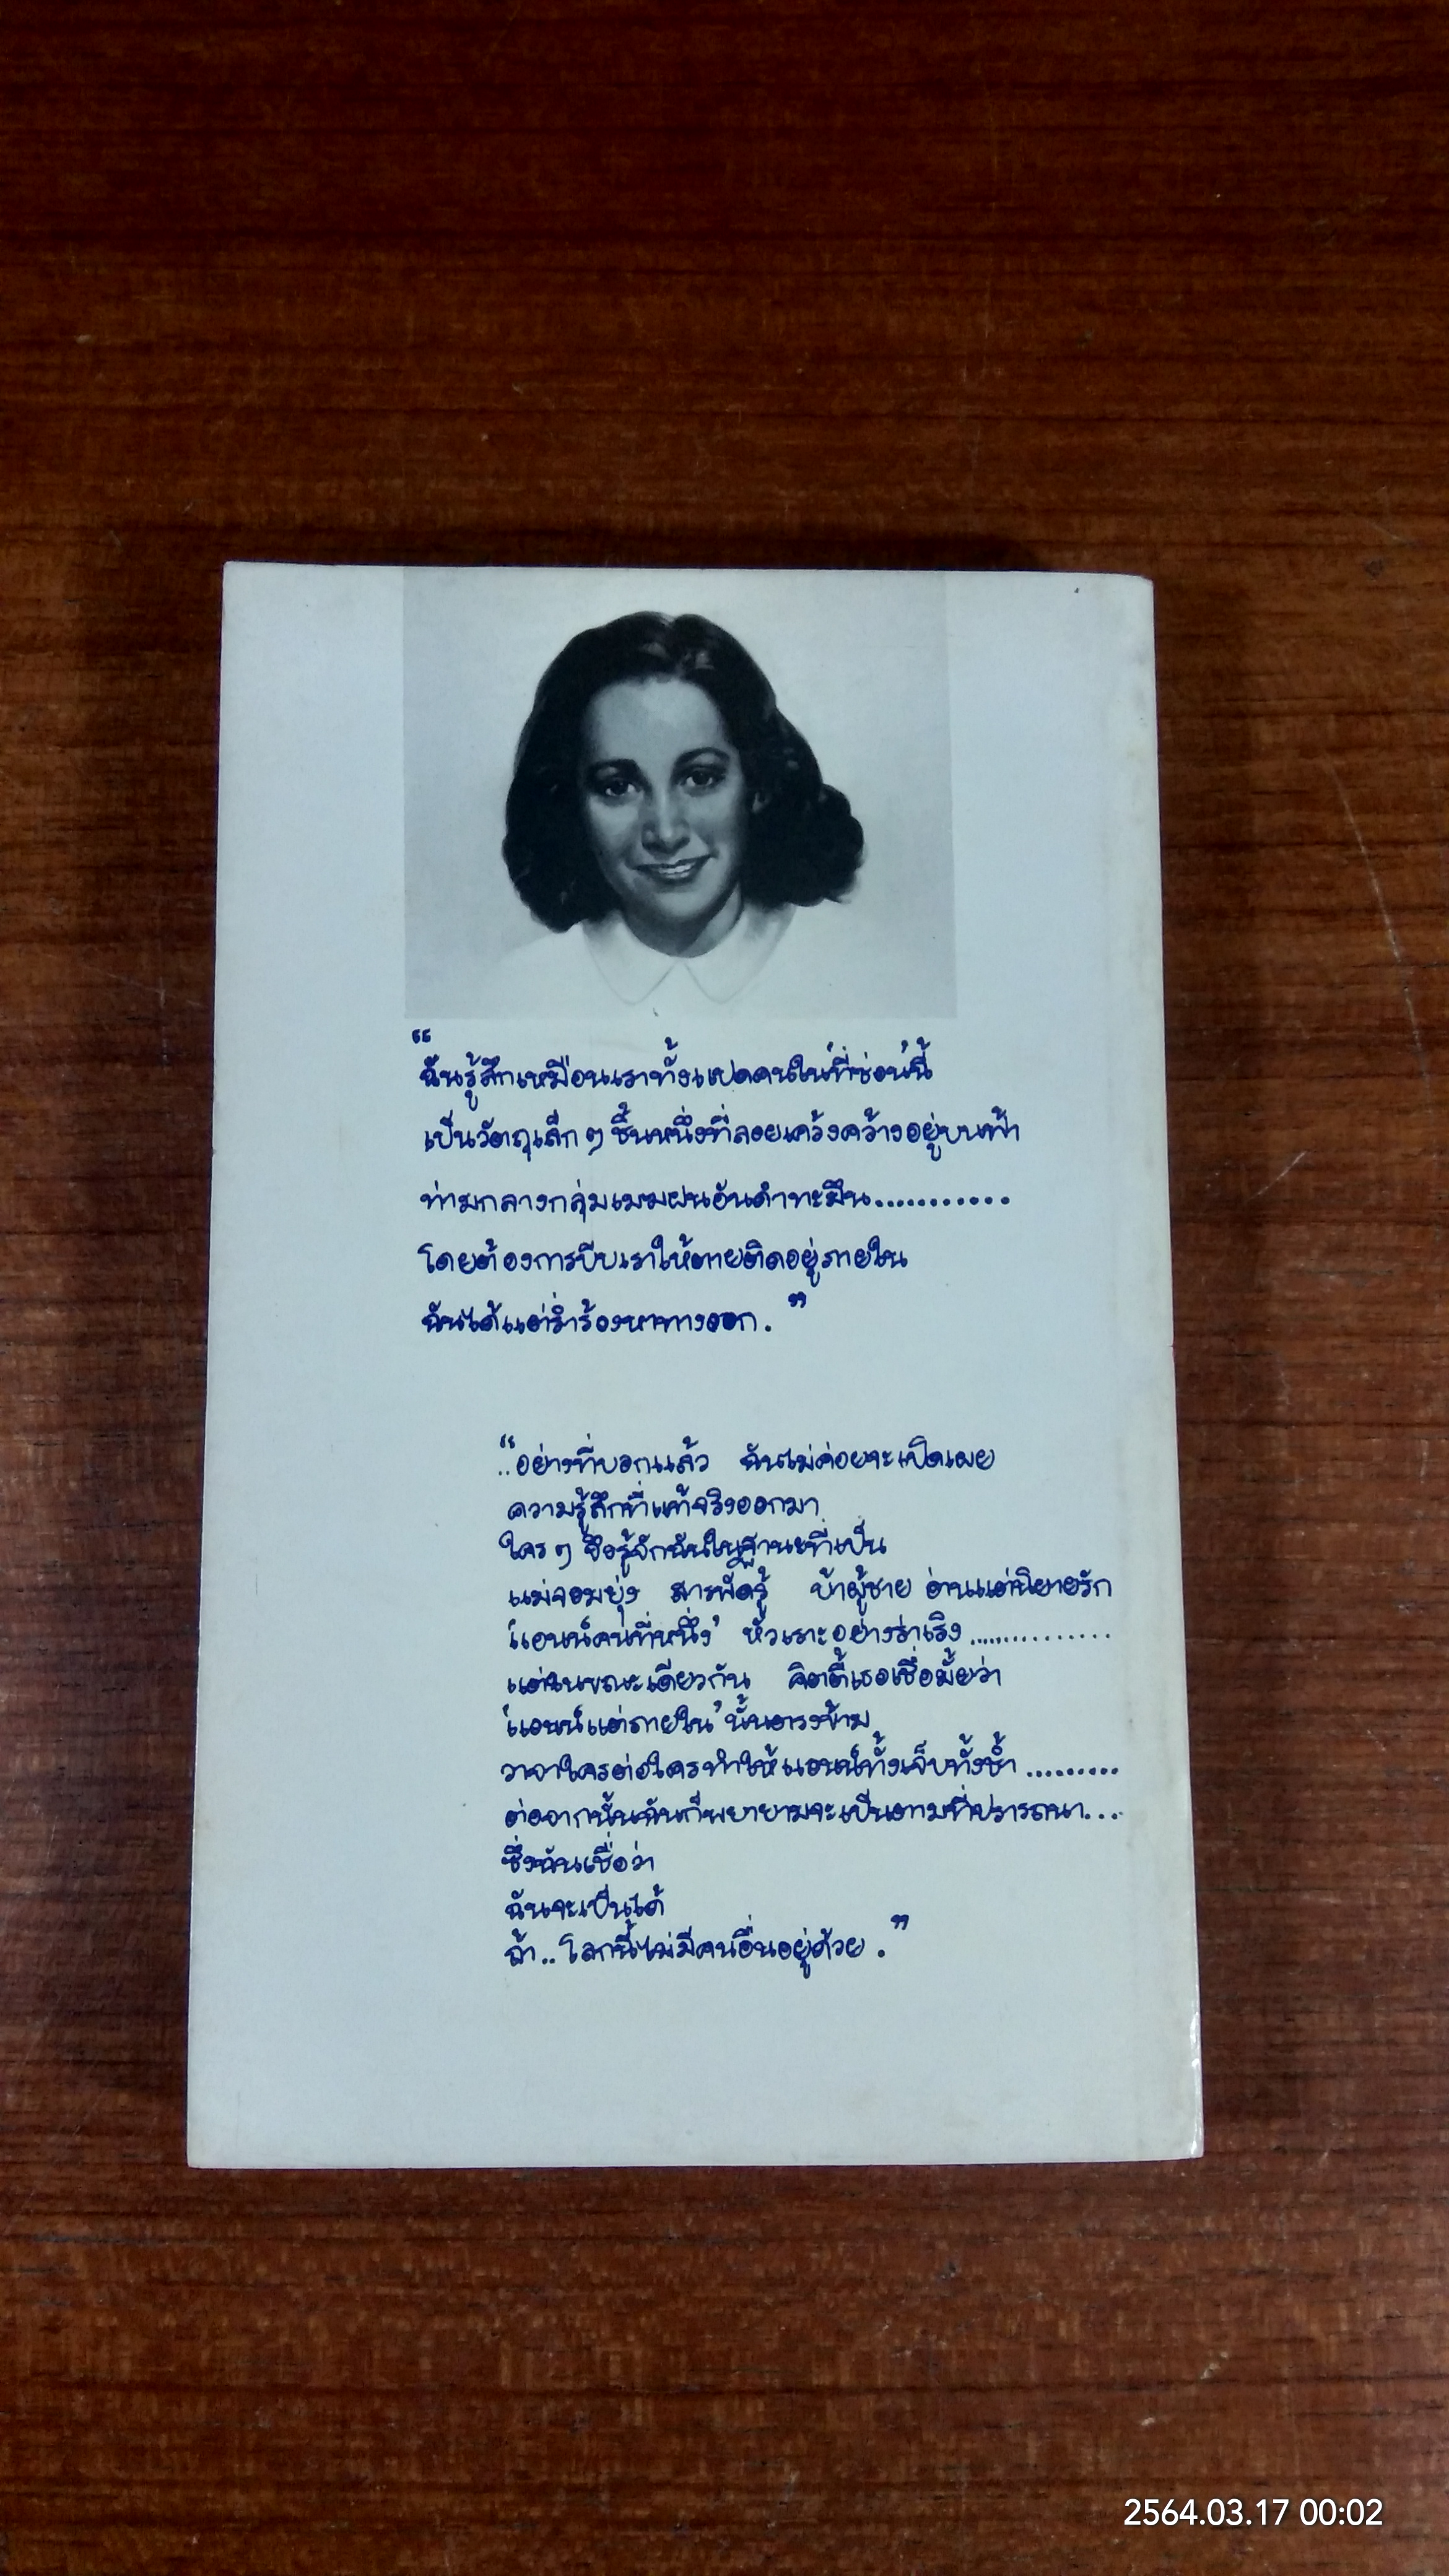 “
ฉันรู้สึกเหมือนเราทั้งแปดคนใน'ที่ซ่อน'นี้
เป็นวัตถุเล็ก ๆ ชิ้นหนึ่งที่ลอยเคว้งคว้างอยู่บนฟ้า
ท่ามกลางกลุ่มเมฆฝนอันดำทะมึน...........
โดยต้องการบีบเราให้ตายติดอยู่ภายใน
ฉันได้แต่ร่ำร้องหาทางออก. ”
“..อย่างที่บอกแล้ว ฉันไม่ค่อยจะเปิดเผย
ความรู้สึกที่แท้จริงออกมา
ใคร ๆ จึงรู้จักฉันในฐานะที่เป็น
แม่จอมยุ่ง สารพัดรู้ บ้าผู้ชาย อ่านแต่นิยายรัก
'แอนน์คนที่หนึ่ง' หัวเราะอย่างร่าเริง...............
แต่ในขณะเดียวกัน คิตตี้เธอเชื่อมั้ยว่า
'แอนน์แต่ภายใน' นั้นตรงข้าม
วาจาใครต่อใครทำให้แอนน์ทั้งเจ็บทั้งช้ำ.........
ต่อจากนั้นฉันก็พยายามจะเป็นตามที่ปรารถนา...
ซึ่งฉันเชื่อว่า
ฉันจะเป็นได้
ถ้า..โลกนี้ไม่มีคนอื่นอยู่ด้วย.”
2564.03.17 00:02